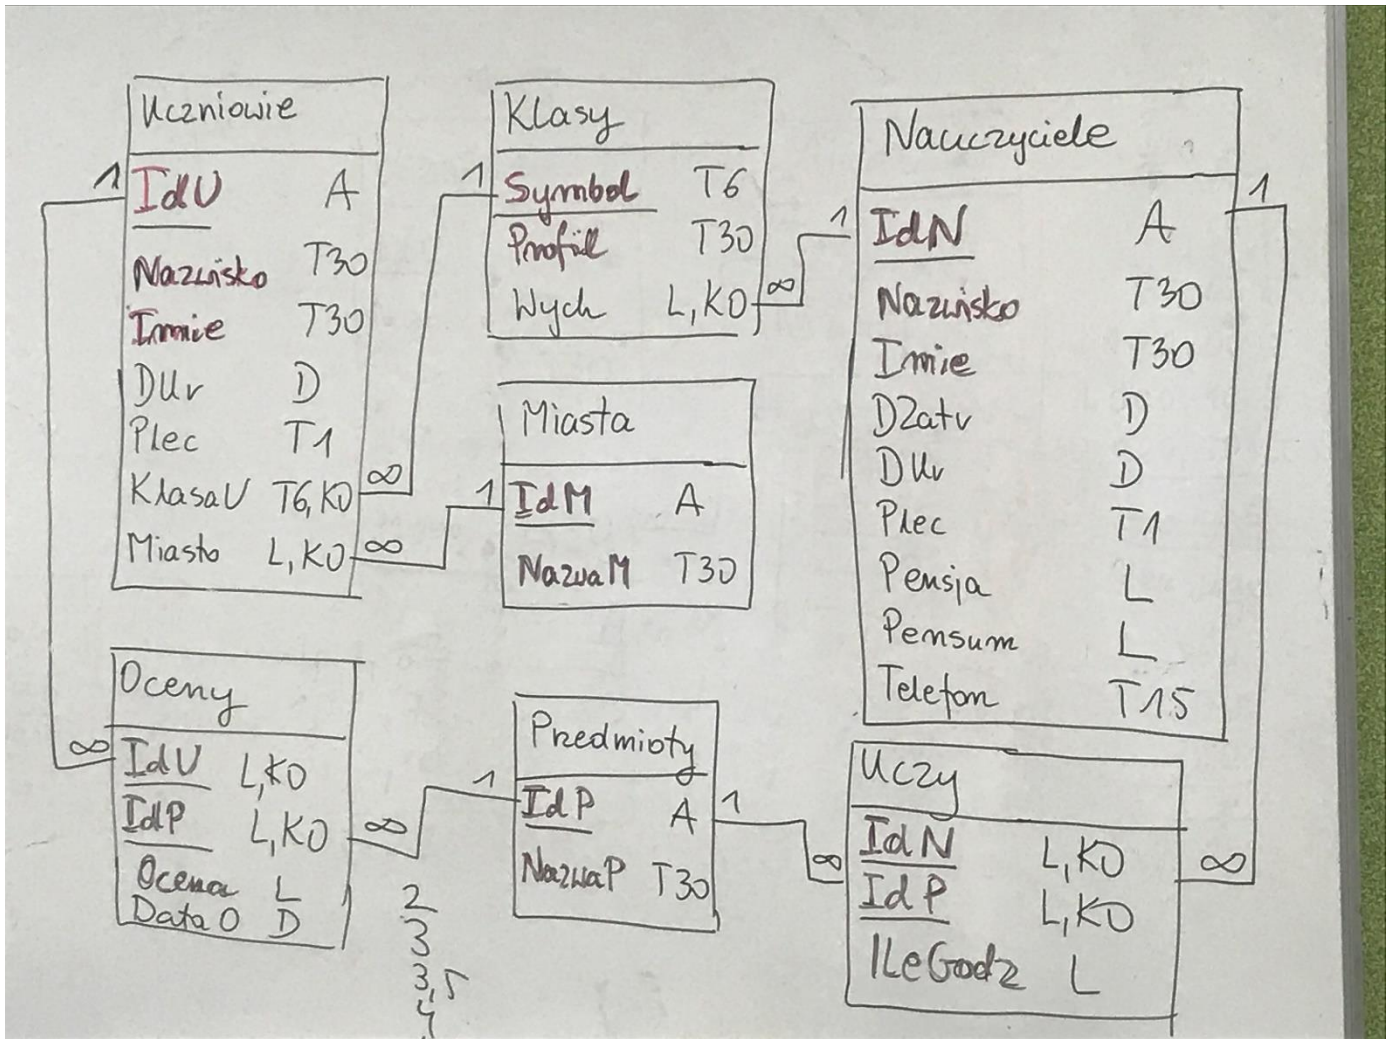 Uczniowie
1 IdU A
Nazwisko T30
Imie T30
DUr D
Plec T1
KlasaU T6,KO ∞
Miasto L,KO ∞
Klasy
1 Symbol T6
Profil T30
Wych L,KO ∞
Miasta
1 IdM A
NazwaM T30
Nauczyciele
1 IdN A 1
Nazwisko T30
Imie T30
DZatr D
DUr D
Plec T1
Pensja L
Pensum L
Telefon T15
Oceny
∞ IdU L,KO
IdP L,KO ∞
Ocena L
DataO D
2
3
3,5
4
Przedmioty
1 IdP A 1
NazwaP T30
Uczy
∞ IdN L,KO ∞
IdP L,KO
ILeGodz L